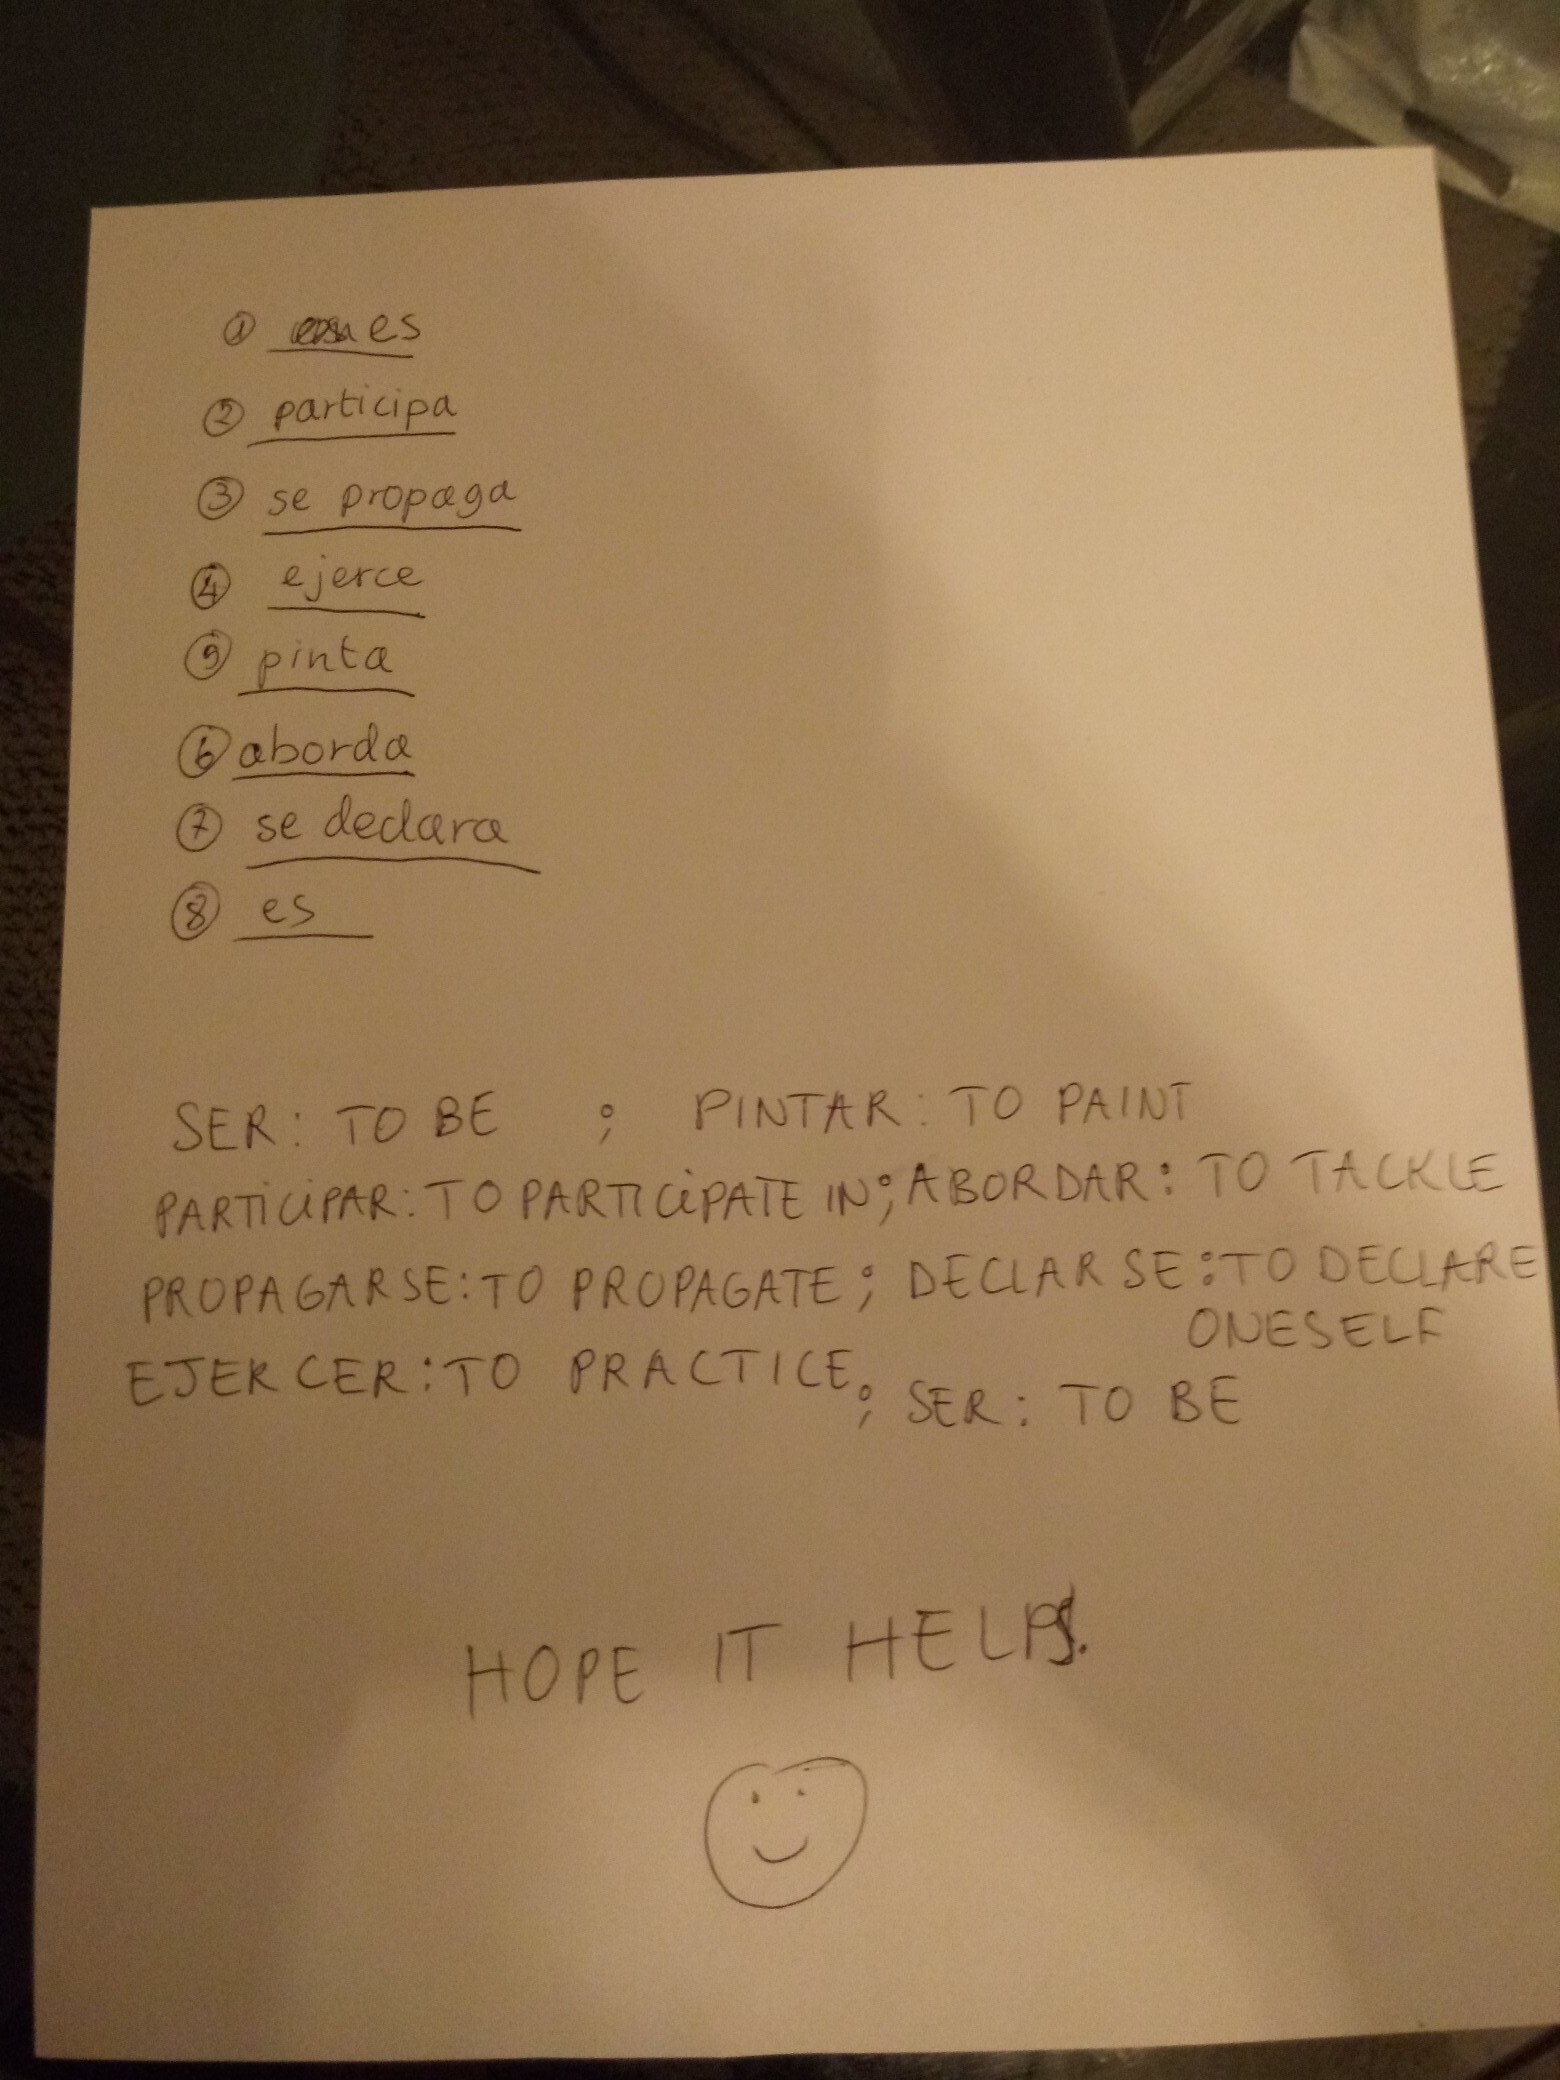 ① es
② participa
③ se propaga
④ ejerce
⑤ pinta
⑥ aborda
⑦ se declara
⑧ es
SER: TO BE ; PINTAR: TO PAINT
PARTICIPAR: TO PARTICIPATE IN; ABORDAR: TO TACKLE
PROPAGARSE: TO PROPAGATE; DECLARSE: TO DECLARE
ONESELF
EJERCER: TO PRACTICE; SER: TO BE
HOPE IT HELPS.